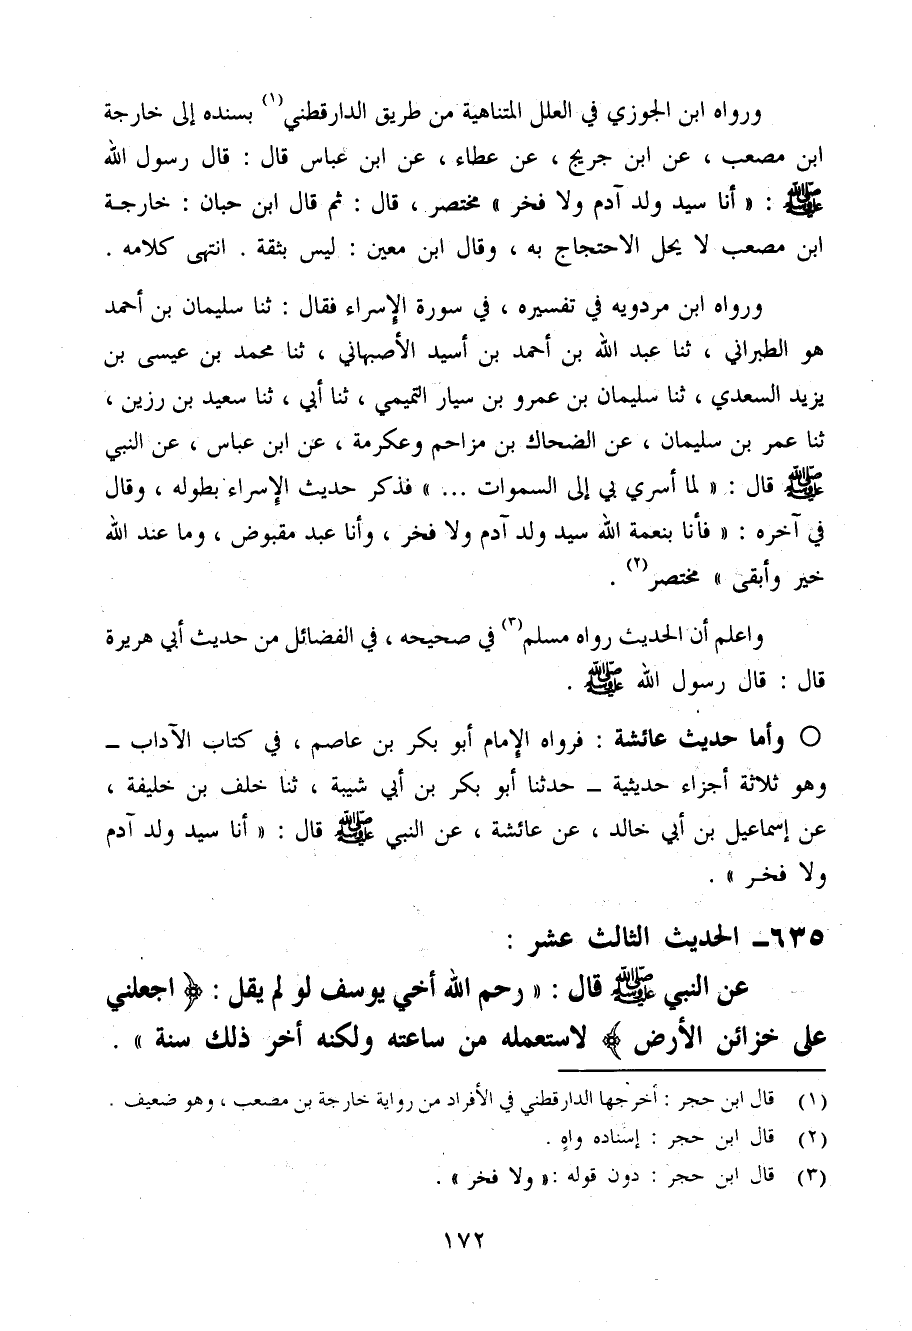 ورواه ابن الجوزي في العلل المتناهية من طريق الدارقطني(١) بسنده إلى خارجة
ابن مصعب ، عن ابن جريج ، عن عطاء ، عن ابن عباس قال : قال رسول الله
ﷺ : « أنا سيد ولد آدم ولا فخر » مختصر ، قال : ثم قال ابن حبان : خارجة
ابن مصعب لا يحل الاحتجاج به ، وقال ابن معين : ليس بثقة . انتهى كلامه .
ورواه ابن مردويه في تفسيره ، في سورة الإسراء فقال : ثنا سليمان بن أحمد
هو الطبراني ، ثنا عبد الله بن أحمد بن أسيد الأصبهاني ، ثنا محمد بن عيسى بن
يزيد السعدي ، ثنا سليمان بن عمرو بن سيار التميمي ، ثنا أبي ، ثنا سعيد بن رزين ،
ثنا عمر بن سليمان ، عن الضحاك بن مزاحم وعكرمة ، عن ابن عباس ، عن النبي
ﷺ قال : « لما أسري بي إلى السموات ... » فذكر حديث الإسراء بطوله ، وقال
في آخره : « فأنا بنعمة الله سيد ولد آدم ولا فخر ، وأنا عبد مقبوض ، وما عند الله
خير وأبقى » مختصر(٢) .
واعلم أن الحديث رواه مسلم(٣) في صحيحه ، في الفضائل من حديث أبي هريرة
قال : قال رسول الله ﷺ .
○ وأما حديث عائشة : فرواه الإمام أبو بكر بن عاصم ، في كتاب الآداب ـ
وهو ثلاثة أجزاء حديثية ـ حدثنا أبو بكر بن أبي شيبة ، ثنا خلف بن خليفة ،
عن إسماعيل بن أبي خالد ، عن عائشة ، عن النبي ﷺ قال : « أنا سيد ولد آدم
ولا فخر » .
٦٣٥ـ الحديث الثالث عشر :
عن النبي ﷺ قال : « رحم الله أخي يوسف لو لم يقل : ﴿ اجعلني
على خزائن الأرض ﴾ لاستعمله من ساعته ولكنه أخر ذلك سنة » .
(١) قال ابن حجر : أخرجها الدارقطني في الأفراد من رواية خارجة بن مصعب ، وهو ضعيف .
(٢) قال ابن حجر : إسناده واهٍ .
(٣) قال ابن حجر : دون قوله : « ولا فخر » .
١٧٢